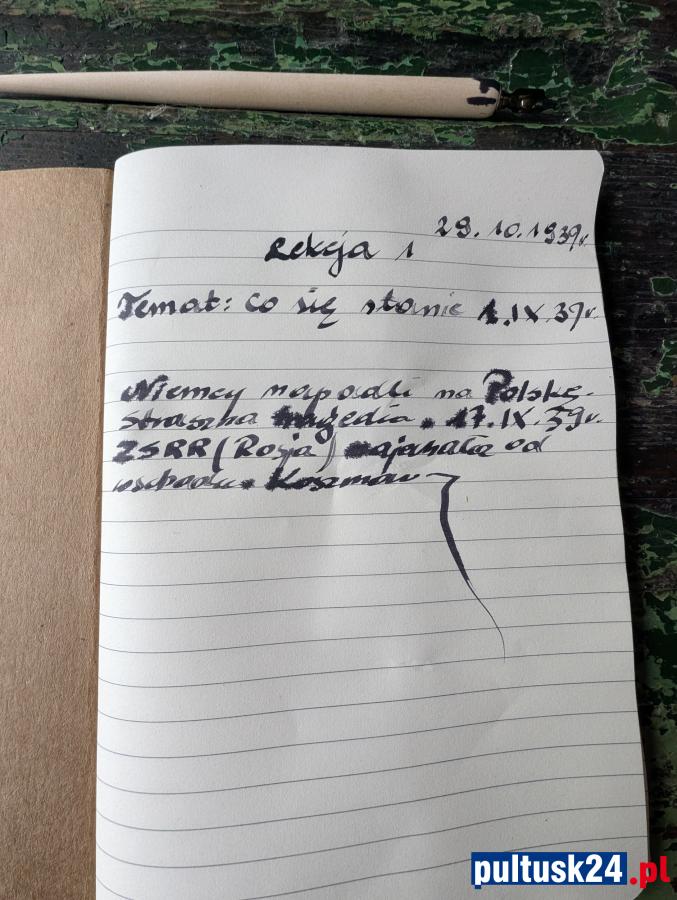 29.10.1939r.
Lekcja 1
Temat: Co się stanie 1.IX.39r.
Niemcy napadli na Polskę.
straszna tragedia. 17.IX.39r.
ZSRR (Rosja) od
wschodu. Koszmar
pultusk24.pl